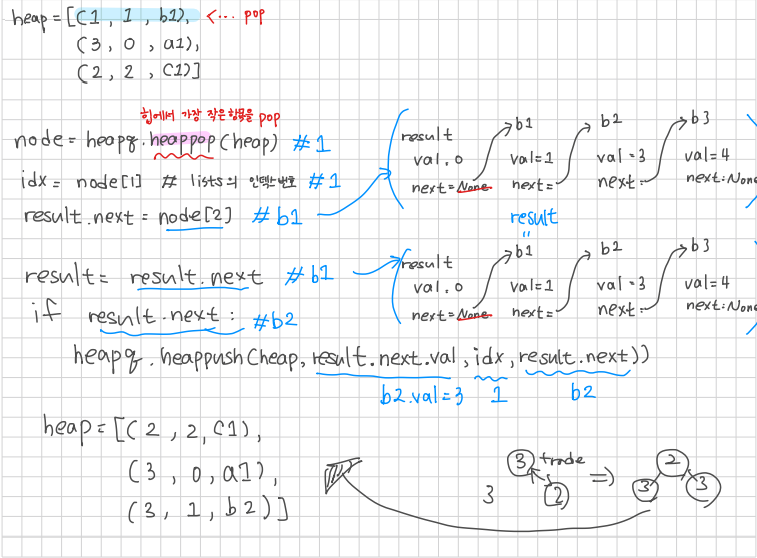 heap = [(1, 1, b1), <--- pop
(3, 0, a1),
(2, 2, C1)]
힙에서 가장 작은 항목을 pop
node = heapq.heappop(heap) #1
idx = node[1] # lists의 인덱스번호 #1
result.next = node[2] #b1
result
val, 0
next = None
b1
val=1
next=
b2
val=3
next=
b3
val=4
next:None
result = result.next #b1
if result.next: #b2
heapq.heappush(heap, result.next.val, idx, result.next))
b2.val=3 1 b2
result
"
result
val, 0
next = None
b1
val=1
next=
b2
val=3
next:
b3
val=4
next:None
heap = [(2, 2, C1),
(3, 0, a1),
(3, 1, b2)]
3 3 trade 2 => 2 3 3